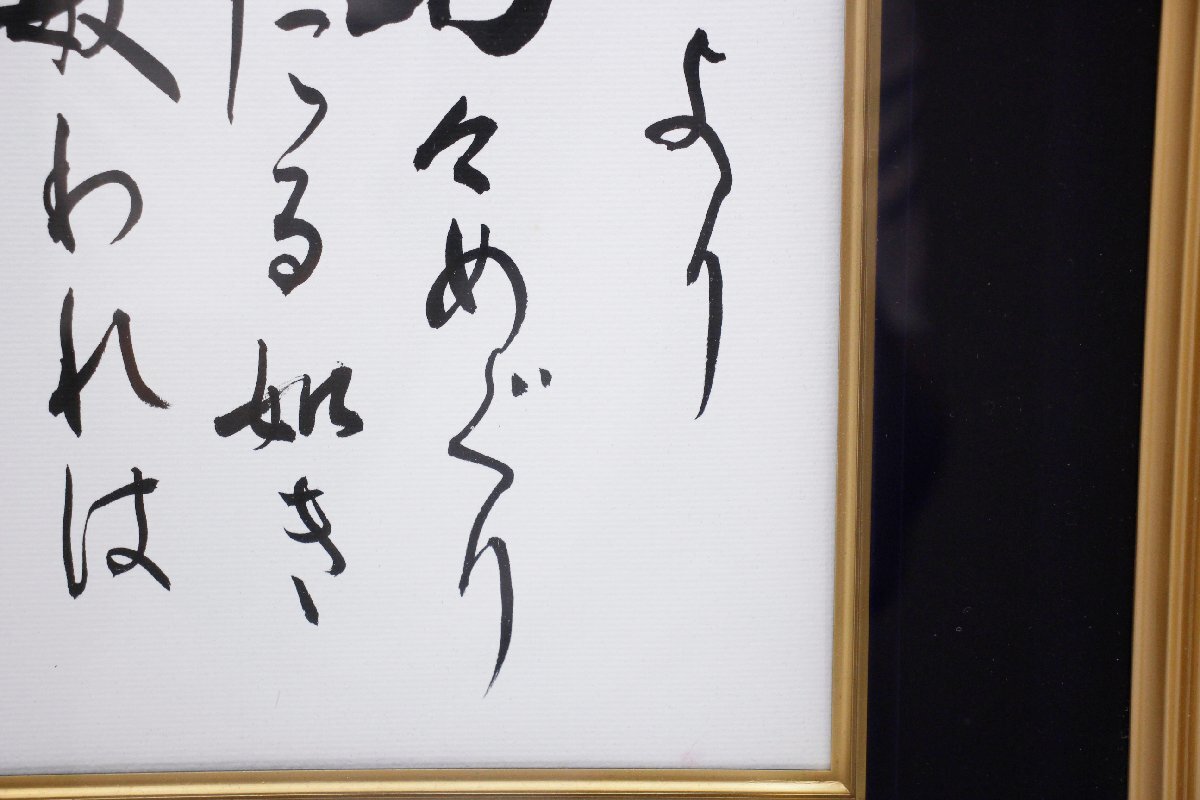 より
々めぐり
たる如き
われは